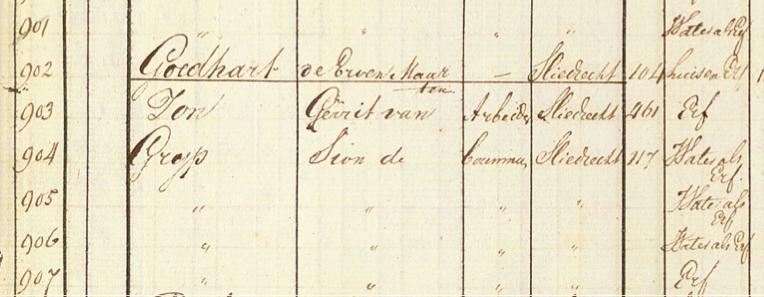 901 " " " " Water als Erf
902 Goedhart de Erven Maar — Sliedrecht 104 huis en Erf
ten
903 Ton Gerrit van Arbeider Sliedrecht 461 Erf
904 Gryp Sion de Bouwman Sliedrecht 117 Water als
Erf
905 " " " " Water als
Erf
906 " " " " Water als Erf
907 " " " " Erf